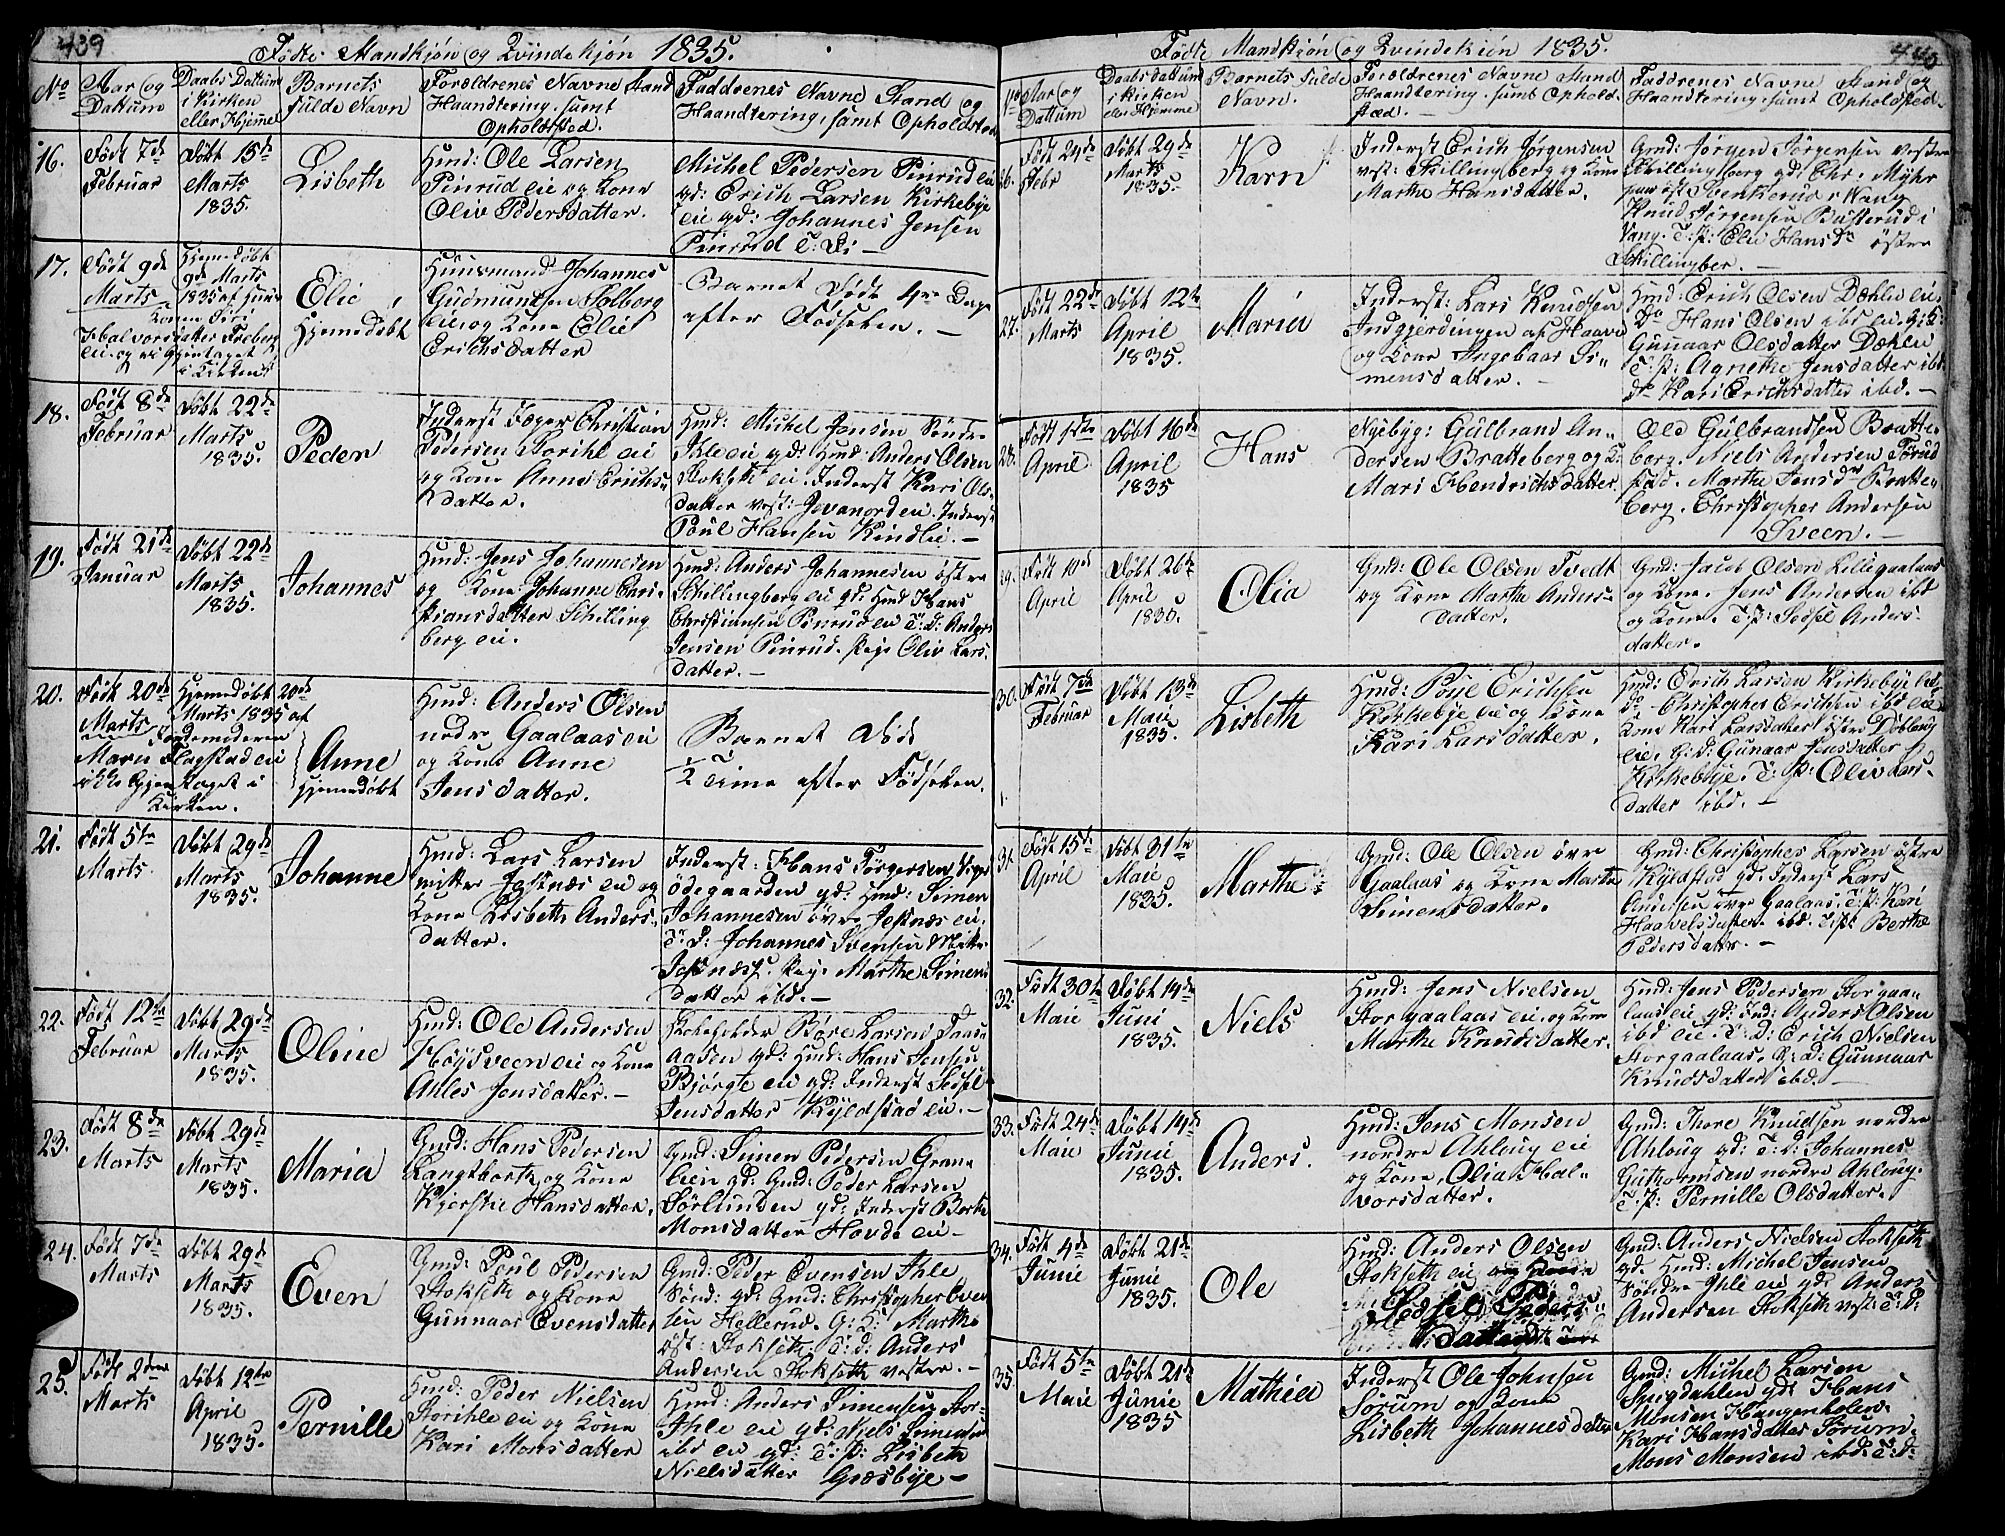 439
Fødte Mandkjøn og Qvindekjøn 1835.
No
Aar og Dattum
Daabs Dattum i Kirken eller Hjemmet
Barnets fulde Navn
Forældrenes Navne Stand Haandtering, samt Opholdsted.
Faddrenes Navne Stand og Haandtering, samt Opholdsted
16.
Født 7de Februar
Døbt 15de Marts 1835.
Lisbeth
Hmd: Ole Larsen
Pinrud eie og Kone
Oliv Pedersdatter.
Michel Pedersen Pinrud eie
gd: Erich Larsen Kirkebye
eie gd: Johannes Jensen
Pinrud
17.
Født 9de Marts
Hjemedøbt 9de Marts 1835 af
Halvorsdatter
Elie
Hjemedøbt
Huusmand Johannes
Gudmundsen Solberg
eie og Kone Elie
Erichsdatter
Barnet Døde 4re Dage
efter Fødselen. —
18.
Født 8de Februar
Døbt 22de Marts 1835.
Peder
Inderst Jæger Christian
Pedersen Storihle eie
og Kone Anne Erichs-
datter.
Hmd: Michel Jensen Søndre
Ihle eie gd: Hmd: Anders Olsen
Stokseth eie. Inderst Kari Ols-
datter
Poul Hansen Kindlie. —
19.
Født 21de Januar
Døbt 22de Marts 1835.
Johannes
Hmd: Jens Johannesen
og Kone Johanne Chri-
stiansdatter Schilling
berg eie.
Hmd: Anders Johannesen østre
Schillingberg eie gd: Hmd Hans
Christiansen Pinrud eie T: D: Anders
Jensen Pinrud. Pige Oliv Lars-
datter. —
20.
Født 20de Marts
Hjemedøbt 20de Marts 1835 af
Jordemoderen
Maren Flagstad eie
Kirken.
Anne
Hjemedøbt
Hmd: Anders Olsen
nedre Gaalaas eie
og Kone Anne
Jensdatter.
Barnet Døde
1/2 Time efter Fødselen.
21.
Født 5te Marts
Døbt 29de Marts 1835.
Johanne
Hmd: Lars Larsen
mittre Jessnæs eie og
Kone Lisbeth Anders-
datter.
Inderst: Hans Torgersen
Ødegaarden gd: Hmd: Simen
Johannesen øvre Jessnæs eie.
T: D: Johannes Svensen Mittre
Jessnæss. Pige Marthe Simens
datter ibd. —
22.
Født 12te Februar
Døbt 29de Marts 1835.
Oline
Hmd: Ole Andersen
Høysveen eie og Kone
Ahles Jensdatter. —
Skoleholder Børe Larsen
aasen gd: Hmd: Hans Jensen
Bjørgte eie gd: Inderst Sedsel
Jensdatter Kyldstad eie. —
23.
Født 8de Marts
Døbt 29de Marts 1835.
Maria
Gmd: Hans Pedersen
og Kone
Kjerstie Hansdatter.
Gmd: Simen Pedersen Gran-
lien gd: Gmd: Peder Larsen
Sørlunden gd: Inderst Berthe
Monsdatter Hovde eie —
24.
Født 7de Marts
Døbt 29de Marts 1835.
Even
Gmd: Poul Pedersen
Stokseth og Kone
Gunnaar Evensdatter
Gmd: Peder Evensen Ihle
Sønd: gd: Gmd: Christopher Even
sen Hellerud. G: K: Marthe
øst: Stokseth. T: D: Anders
Andersen Stokseth vestre. —
25.
Født 2den Marts
Døbt 12te April 1835.
Pernille
Hmd: Peder Nielsen
Storihle eie og Kone
Kari Monsdatter
Hmd: Anders Simensen Stor-
Ihle eie gd: Niels Simensen
ibd eie gd: T: P: Lisbeth
Nielsdatter Græsbye —
440
Fødte Mandkjøn og Qvindekjøn 1835.
No
Aar og Dattum
Daabsdattum i Kirken eller Hjemme
Barnets fulde Navn.
Forældrenes Navne Stand Haandtering, samt Opholdsted. —
Faddrenes Navne Stand og Haandtering, samt Opholdsted.
26.
Født 24de Febr
Døbt 29de Marts 1835.
Karn
Inderst Erich Jørgensen
vest: Skillingberg og Kone
Marthe Hansdatter.
Gmd: Jørgen Jørgensen vestre
Skillingberg gd: Chr: Mÿhr
i Vang
Knud Jørgensen Bufterud i
Vang. T: P: Elie Hansd. østre
Skillingber. —
27.
Født 22de Marts
Døbt 12te April 1835.
Maria
Inderst: Lars Knudsen
Indgjerdingen af Haave
og Kone Ingebaar Si-
mensdatter. —
Hmd: Erich Olsen Dæhlie eie.
Do Hans Olsen ibd eie. G: K:
Gunnaar Olsdatter Dæhlie
T: P: Agnethe Jensdatter ibd.
do Kari Erichsdatter ibd. —
28.
April
Døbt 16de April 1835
Hans
Nyebyg: Gulbrand An-
dersen Bratteberg og K:
Mari Hendrichsdatter
Ole Gulbrandsen Bratte-
berg. Niels Andersen
Marthe Jensd. Bratte-
berg. Christopher Andersen
Sveen. —
29.
Født 10de April
Døbt 26de April 1835.
Olia
Gmd: Ole Olsen Tvedt
og Kone Marthe Anders-
datter.
Gmd: Jacob Olsen Lillegaalaas
og Kone. Jens Andersen ibd
og Kone. T: P: Sedsel Anders-
datter.
30.
Født 7de Februar
Døbt 13de Maie 1835.
Lisbeth
Hmd: Poul Erichsen
Kirkebye eie og Kone
Kari Larsdatter.
Hmd: Erich Larsen Kirkebye eie
do Christopher Erichsen ibd eie
Kone Kari Larsdatter østre
eie. G: D: Gunaar Jensdatter
Kirkebye. T: P: Oliv Lars-
datter ibd. —
31.
Født 15de April
Døbt 31te Maie 1835.
Marthe
Gmd: Ole Olsen øvre
Gaalaas og Kone Marte
Simensdatter.
Gmd: Christopher Larsen østre
Kyldstad gd: Inderst Lars
øvre Gaalaas. T: P: Kari
Haavelsdatter ibd. T: P: Berthe
Pedersdatter. —
32.
Født 30te Maie
Døbt 14de Juni 1835.
Niels
Hmd: Jens Nielsen
Storgaalaas eie og Kone
Marthe Knudsdatter.
Hmd: Jens Pedersen Storgaa-
laas eie gd: Ind: Anders Olsen
ibd eie. T: D: Erich Nielsen
Storgaalaas. G: D: Gunnaar
Knudsdatter ibd. —
33.
Født 24de Maie
Døbt 14de Junie 1835.
Anders.
Hmd: Jens Monsen
nordre Ahloug eie
og Kone Olia Hal-
vorsdatter.
Gmd: Thore Knudsen nordre
Ahloug gd: T: D: Johannes
Guthormsen nordre Ahloug.
T: P: Pernille Olsdatter.
34.
Født 4de Junie
Døbt 21de Junie 1835.
Ole
Hmd: Anders Olsen
Stokseth eie
Sedsel Peders-
Datter
Gmd: Anders Nielsen Stokseth
gd: Hmd: Michel Jensen
Søndre Ihle eie gd: Anders
Andersen Stokseth vest: T: D:
35
Født 5te Maie
Døbt 21de Junie 1835
Mathia
Inderst Ole Johnsen
Sørum og Kone
Lisbeth Johannesdatter
Gmd: Michel Larsen
Snigdahlen gd: Hans
Monsen Haugenholen.
Kari Hansdatter Sørum.
Mons Monsen ibd: T: D: